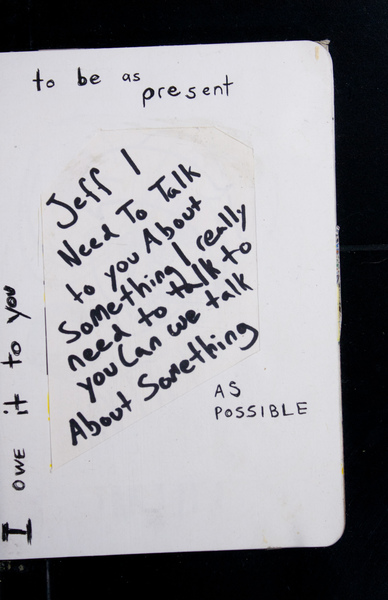 I owe it to you
to be as
present
Jeff I
Need To Talk
to you About
Something I really
need to talk to
you Can we talk
About Something
AS
POSSIBLE